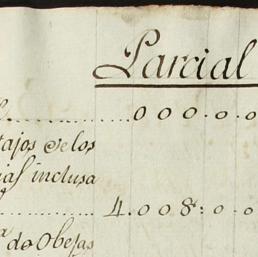 Parcial
000.0
tajos de los
ial inclusa
4.008:0.0
de Obejas